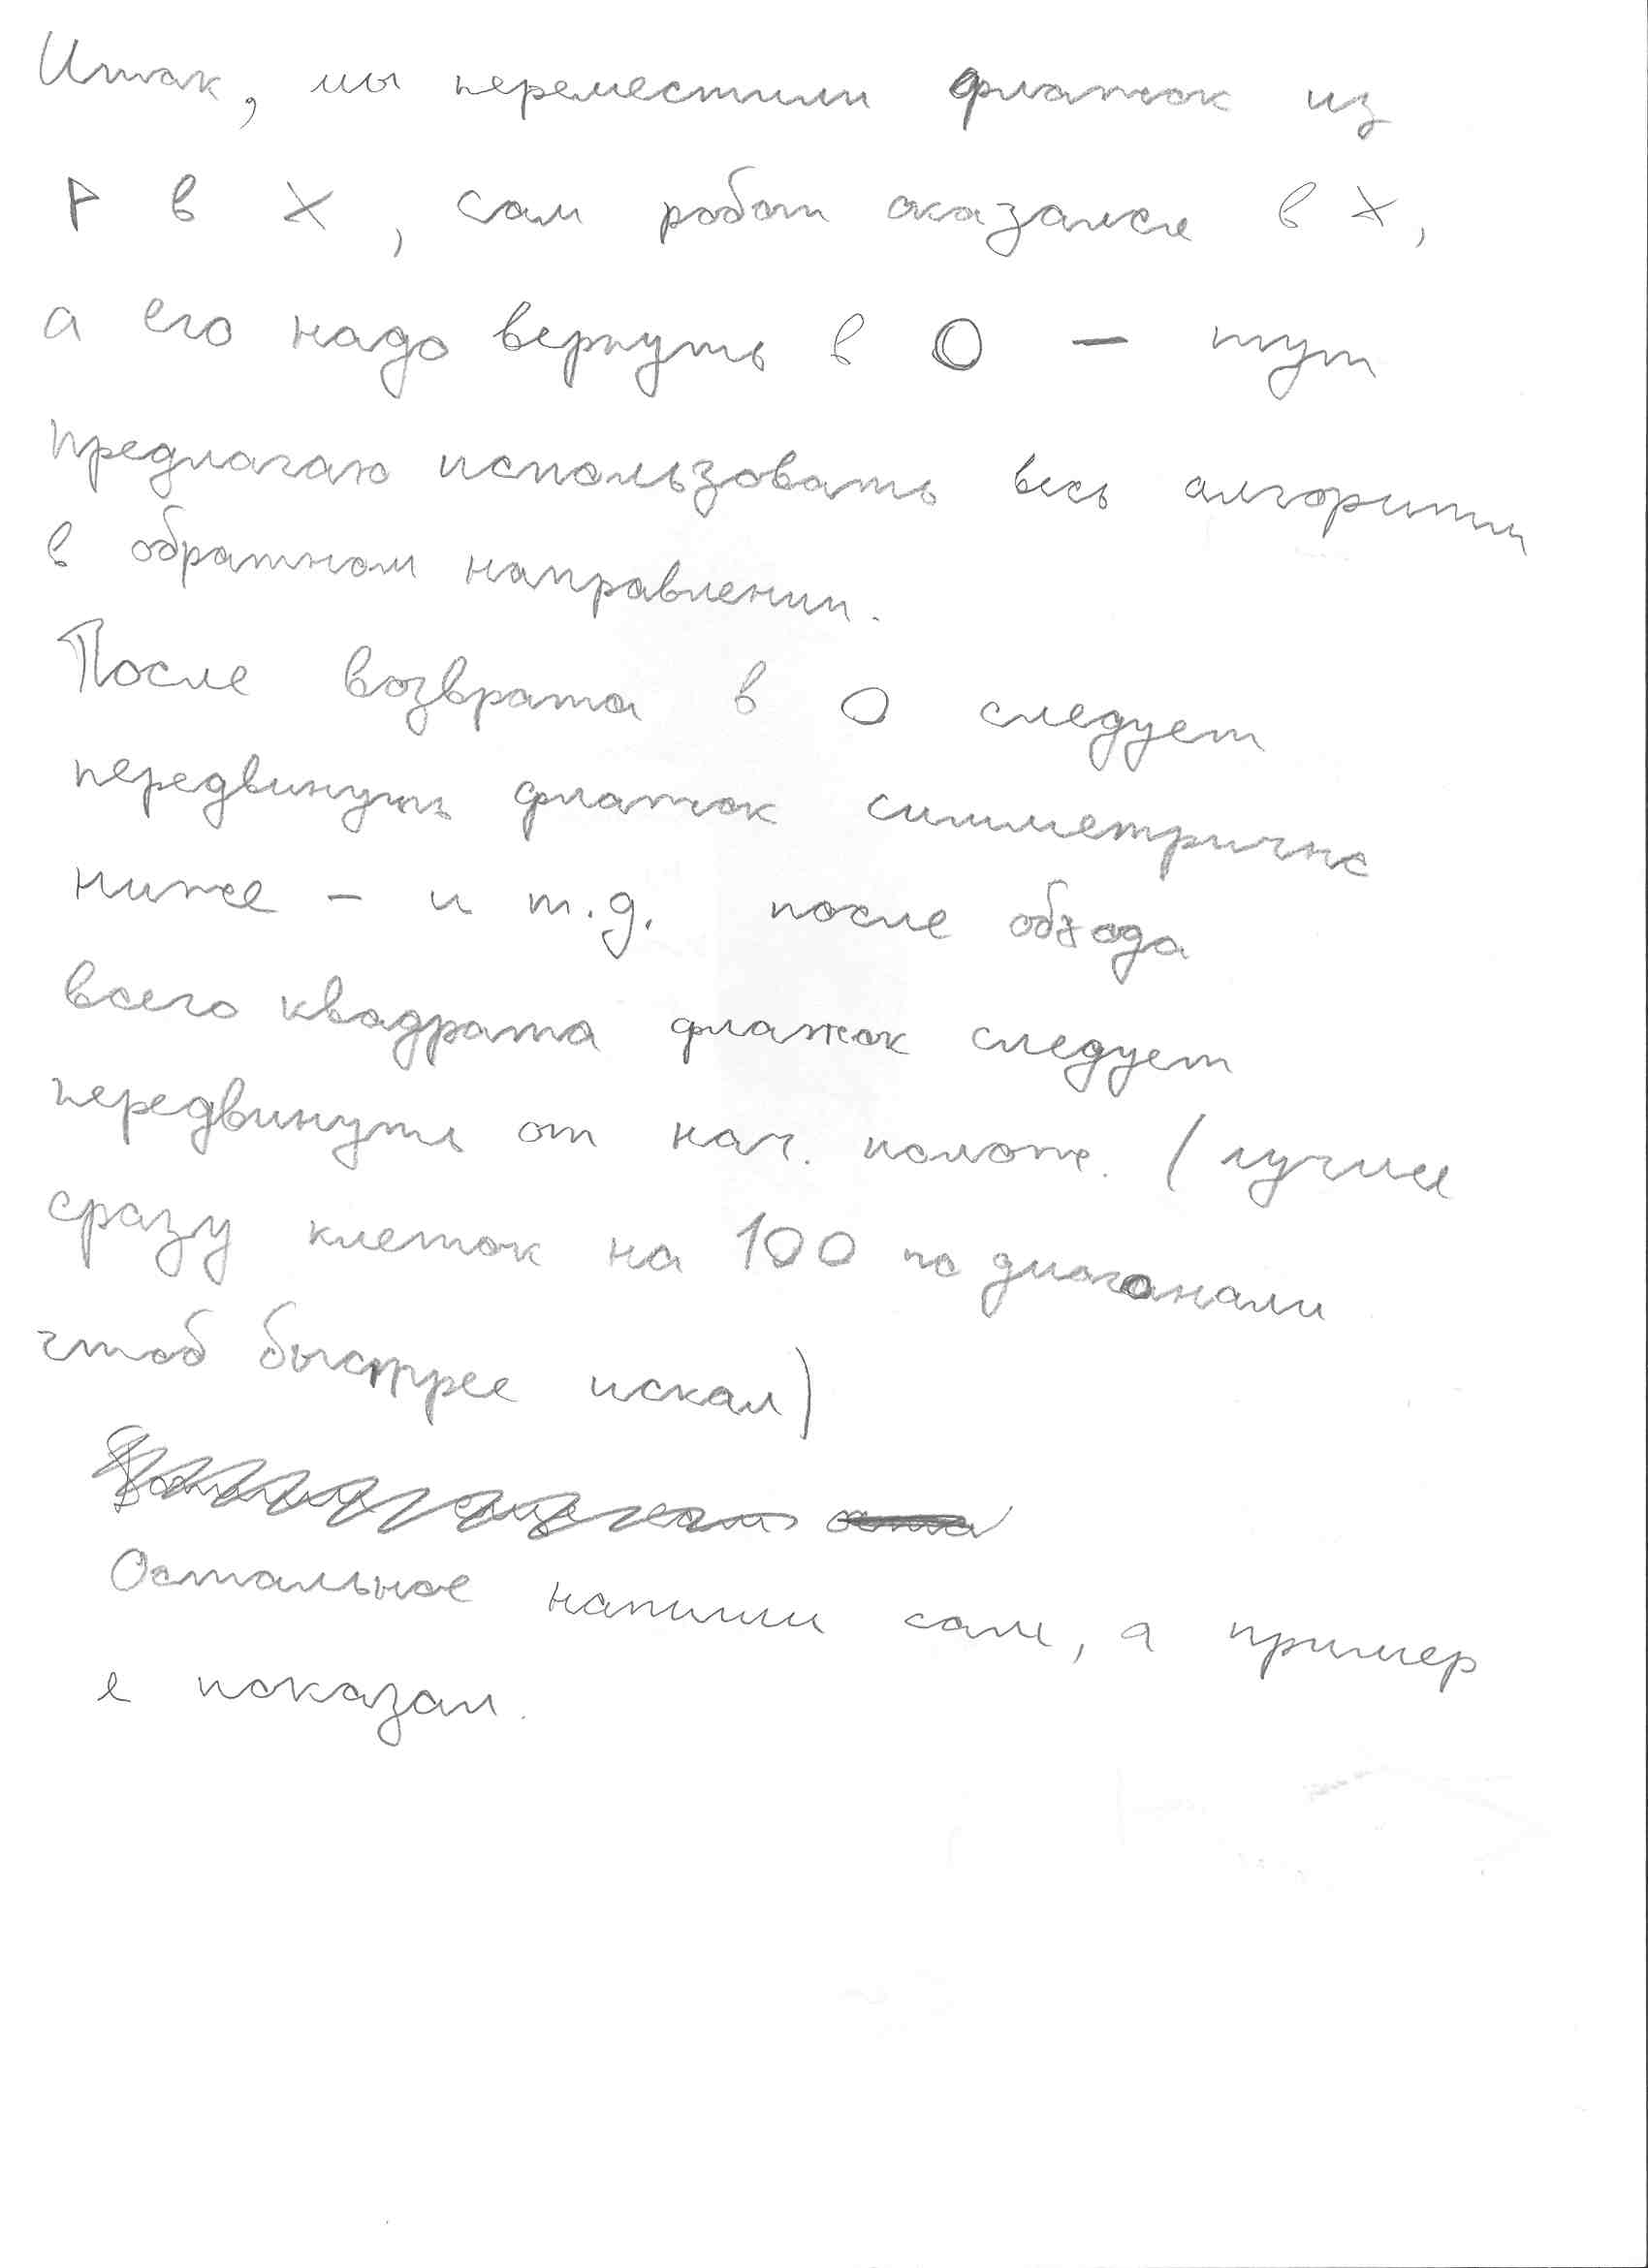 Итак, мы переместили флажок из
Р в X, сам робот оказался в X,
а его надо вернуть в О – тут
предлагаю использовать весь алгоритм
в обратном направлении.
После возврата в О следует
передвинуть флажок симметрично
ниже – и т.д. после обхода
всего квадрата флажок следует
передвинуть от нач. полож. (лучше
сразу клеток на 100 по диагонали
чтоб быстрее искал)
Остальное напиши сам, а пример
я показал.